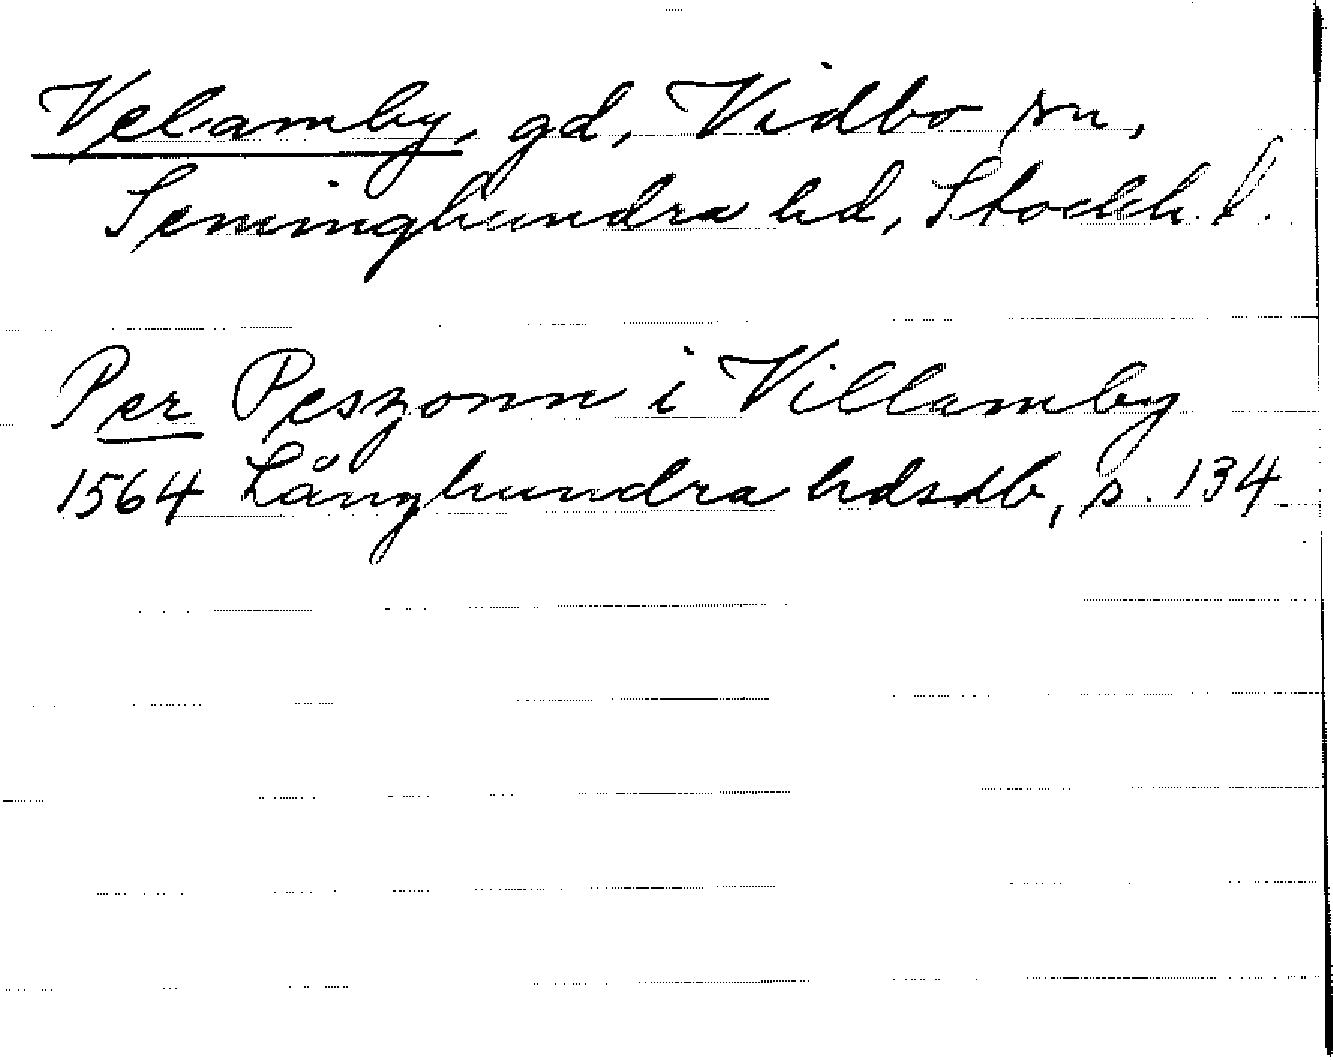 Velamby, gd, Vidbo sn,
Seminghundra hd, Stockh. l.
Per Peszonn i Villamby
1564 Långhundra hdsdb, s. 134